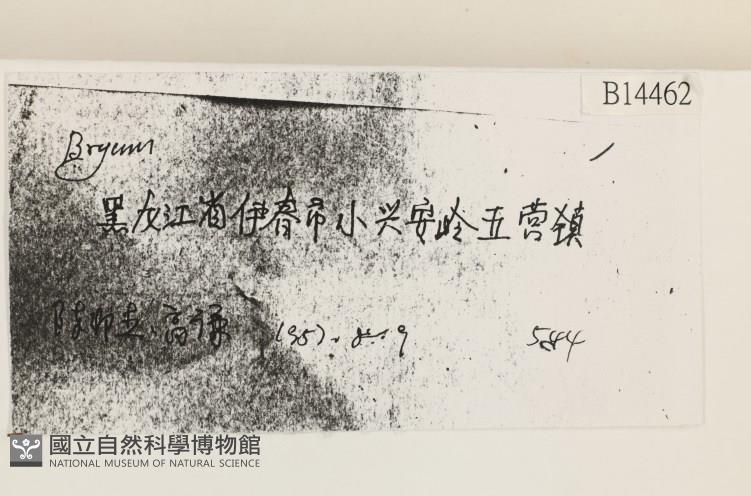 B14462
Bryum
黑龙江省伊春市小兴安岭五营镇
高谦 1957.8.9 544
國立自然科學博物館
NATIONAL MUSEUM OF NATURAL SCIENCE